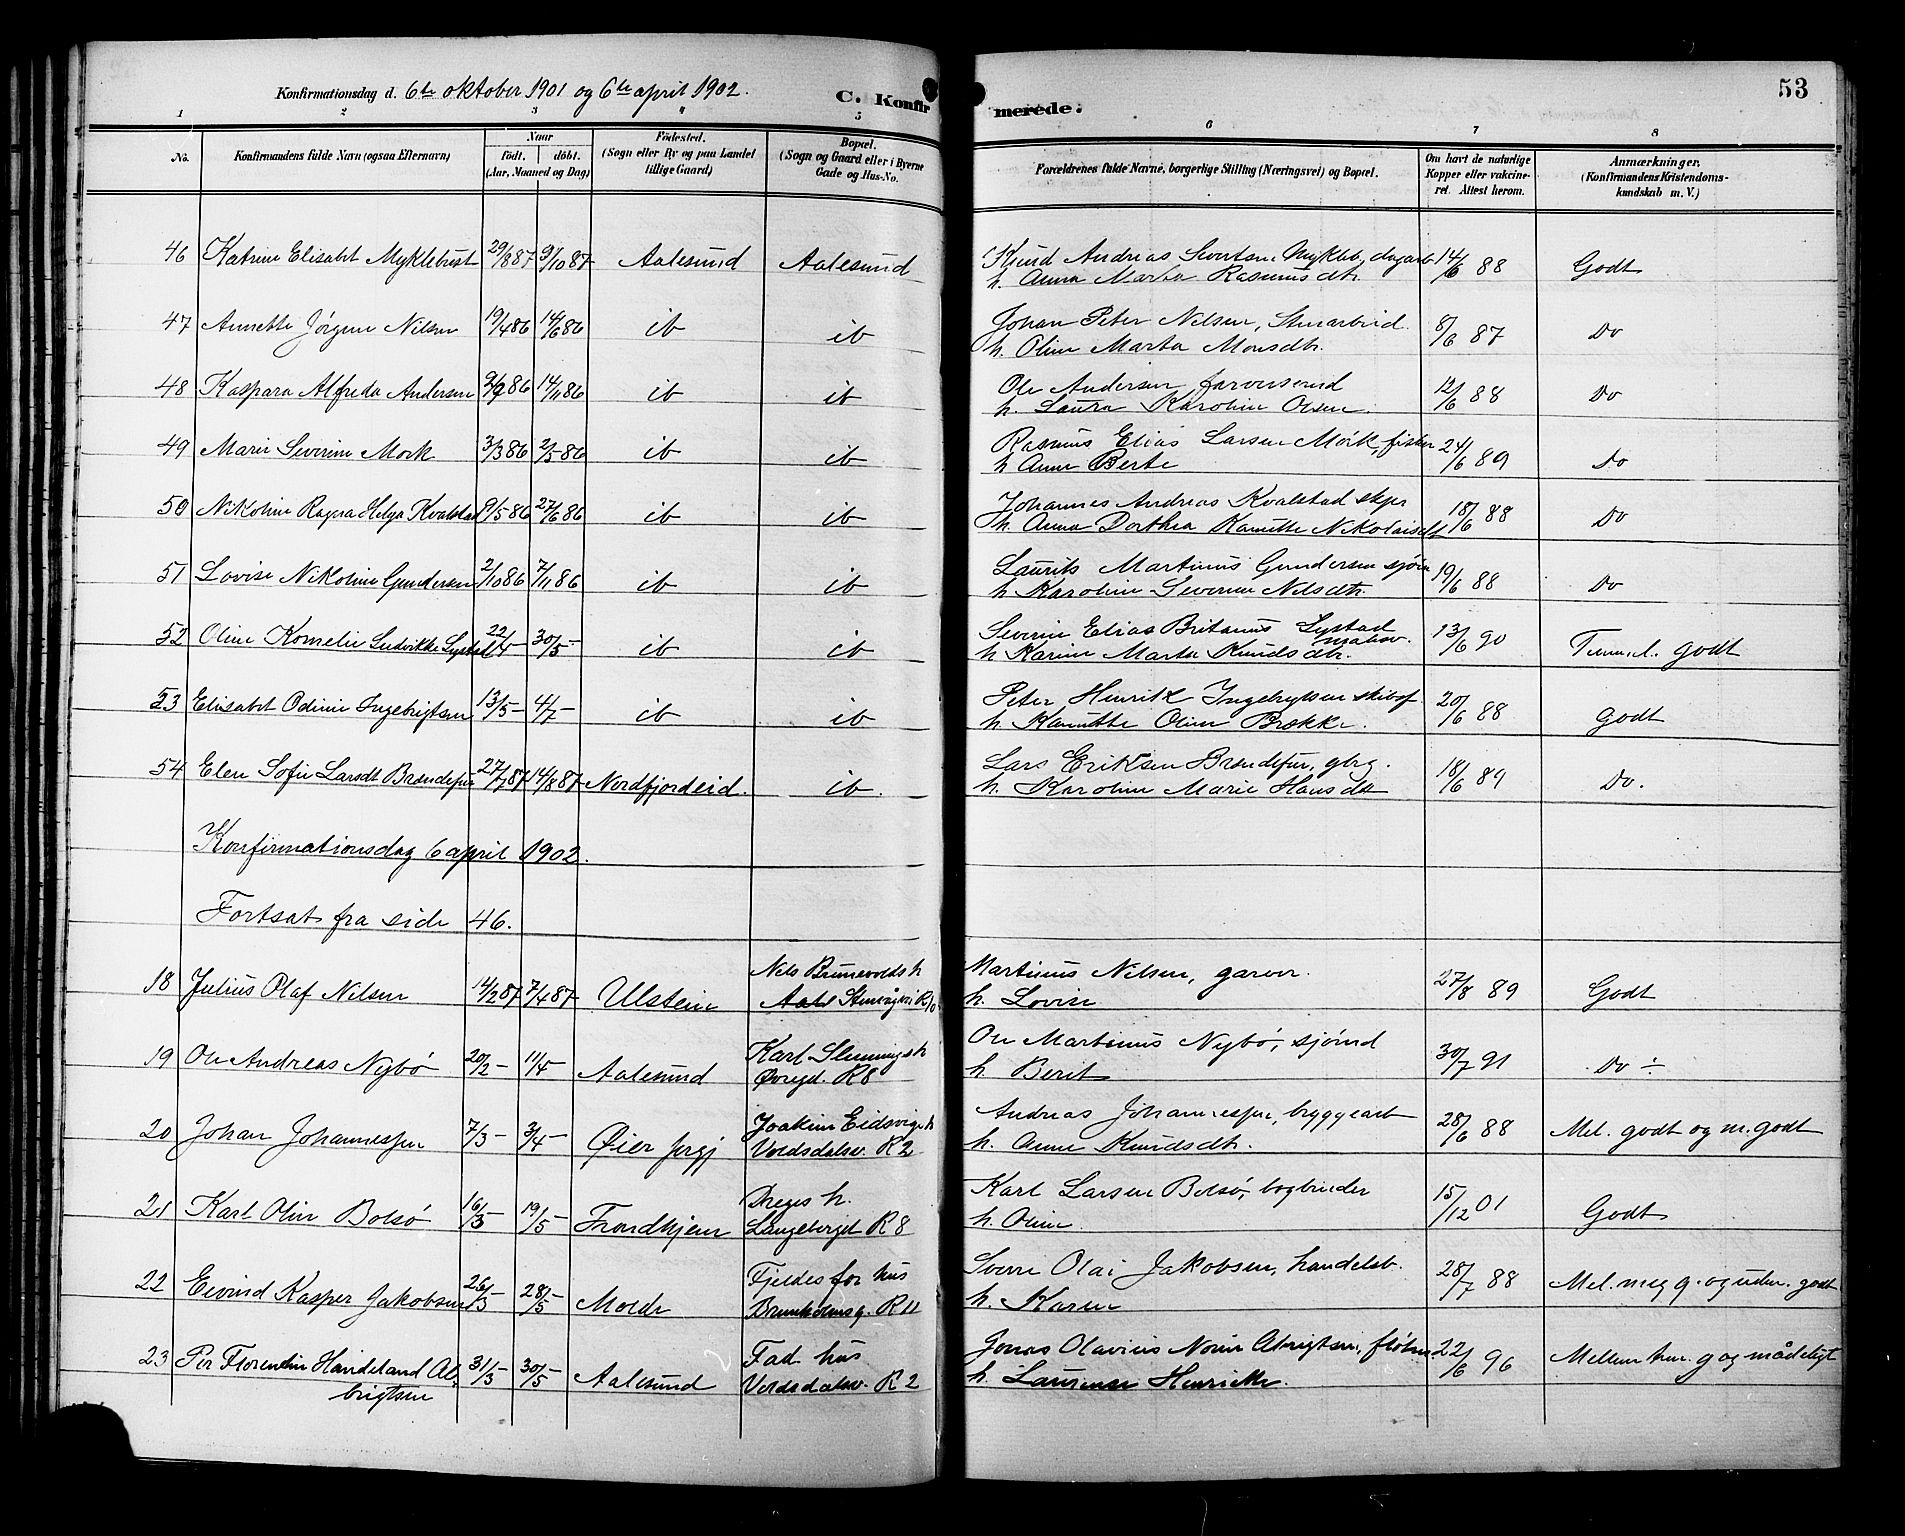 Konfirmationsdag d. 6te oktober 1901 og 6te april 1902.
C. Konfirmerede.
53
1 2 3 4 5 6 7 8
No. Konfirmandens fulde Navn (ogsaa Efternavn) Naar født. døbt. (Aar, Maaned og Dag) Fødested. (Sogn eller By og paa Landet tillige Gaard) Bopæl. (Sogn og Gaard eller i Byerne Gade og Hus-No. Forældrenes fulde Navne, borgerlige Stilling (Næringsvei) og Bopæl. Om havt de naturlige Kopper eller vakcineret. Attest herom. Anmærkninger. (Konfirmandens Kristendomskundskab m. V.)
46 Katrine Elisabet Myklebust 29/8 87 9/10 87 Aalesund Aalesund Knud Andreas Sivertsen Mykleb. dagarb 14/6 88 Godt
h. Anna Marta Rasmusdtr.
47 Annette Jørgine Nilsen 19/4 86 14/6 86 ib ib Johan Peter Nilsen, Stenarbeid. 8/6 87 Do
h. Oline Marta Monsdtr.
48 Kaspara Alfreda Andersen 2/9 86 14/11 86 ib ib Ole Andersen, farversvend 12/6 88 Do
h. Laura Karoline Olsen.
49 Marie Severine Mork 3/3 86 2/5 86 ib ib Rasmus Elias Larsen Mork, fisker 24/6 89 Do
h Anne Berte
50 Nikoline Ragna Helga Kvalstad 9/5 86 27/6 86 ib ib Johannes Andreas Kvalstad skpr 18/6 88 Do
h. Anna Dorthea Kanutte Nikolaisdt
51 Lovise Nikoline Gundersen 2/10 86 7/11 86 ib ib Laurits Martinus Gundersen sjøm 19/6 88 Do
h Karoline Severine Nilsdtr.
52 Oline Kornelie Ludvikke Lystad 22/4 - 30/5 - ib ib Severin Elias Britanus Lystad 13/6 90 godt
h Karine Marta Knudsdtr.
53 Elisabet Odinie Ingebrigtsen 13/5 - 4/7 - ib ib Peter Henrik Ingebrigtsen skibsf. 20/6 88 godt
h Kanutte Oline Brække.
54 Elen Sofie Larsdt Brændefur 27/7 87 14/8 87 Nordfjordeid. ib. Lars Eriksen Brændefur, gbrg. 18/6 89 Do.
h. Karoline Marie Hansdt
Konfirmationsdag 6 april 1902.
Fortsat fra side 46.
18 Julius Olaf Nilsen 14/2 87 7/4 87 Ulstein Nels Brunevolds h Martinus Nilsen, garver. 27/8 89 Godt
h. Lovise
19 Ole Andreas Nybø 20/2 - 11/4 Aalesund Karl Slinnings h Ole Martinus Nybø, sjømd 30/7 91 Do ÷
Øvregd. R 8 h Berit
20 Johan Johannessen 7/3 - 3/4 - Øier prgj Joakim Eidsvigs h Andreas Johannessen, byggearb 28/6 88 Mel. godt og m. godt
Voldsdalsv. R 2 h. Anne Knudsdtr.
21 Karl Olin Bolsø 16/3 - 19/5 - Trondhjem Dreges h. Karl Larsen Bolsø, bogbinder 15/12 01 Godt
Langeberget R 8 h. Oline
22 Eivind Kasper Jakobsen 26/3 - 28/5 - Molde Brunholmsg. R 11 Sverre Olai Jakobsen, handelsb. 28/7 88 Mel. meg g. og udm. godt
h. Karen
23 Per Florentin Handeland Albrigtsen 31/3 - 30/5 - Aalesund Fad. hus Jonas Olavius Albrigtsen, 22/6 96 g og mådeligt
Voldsdalsv. R 2 h. Laurense Henrikke.